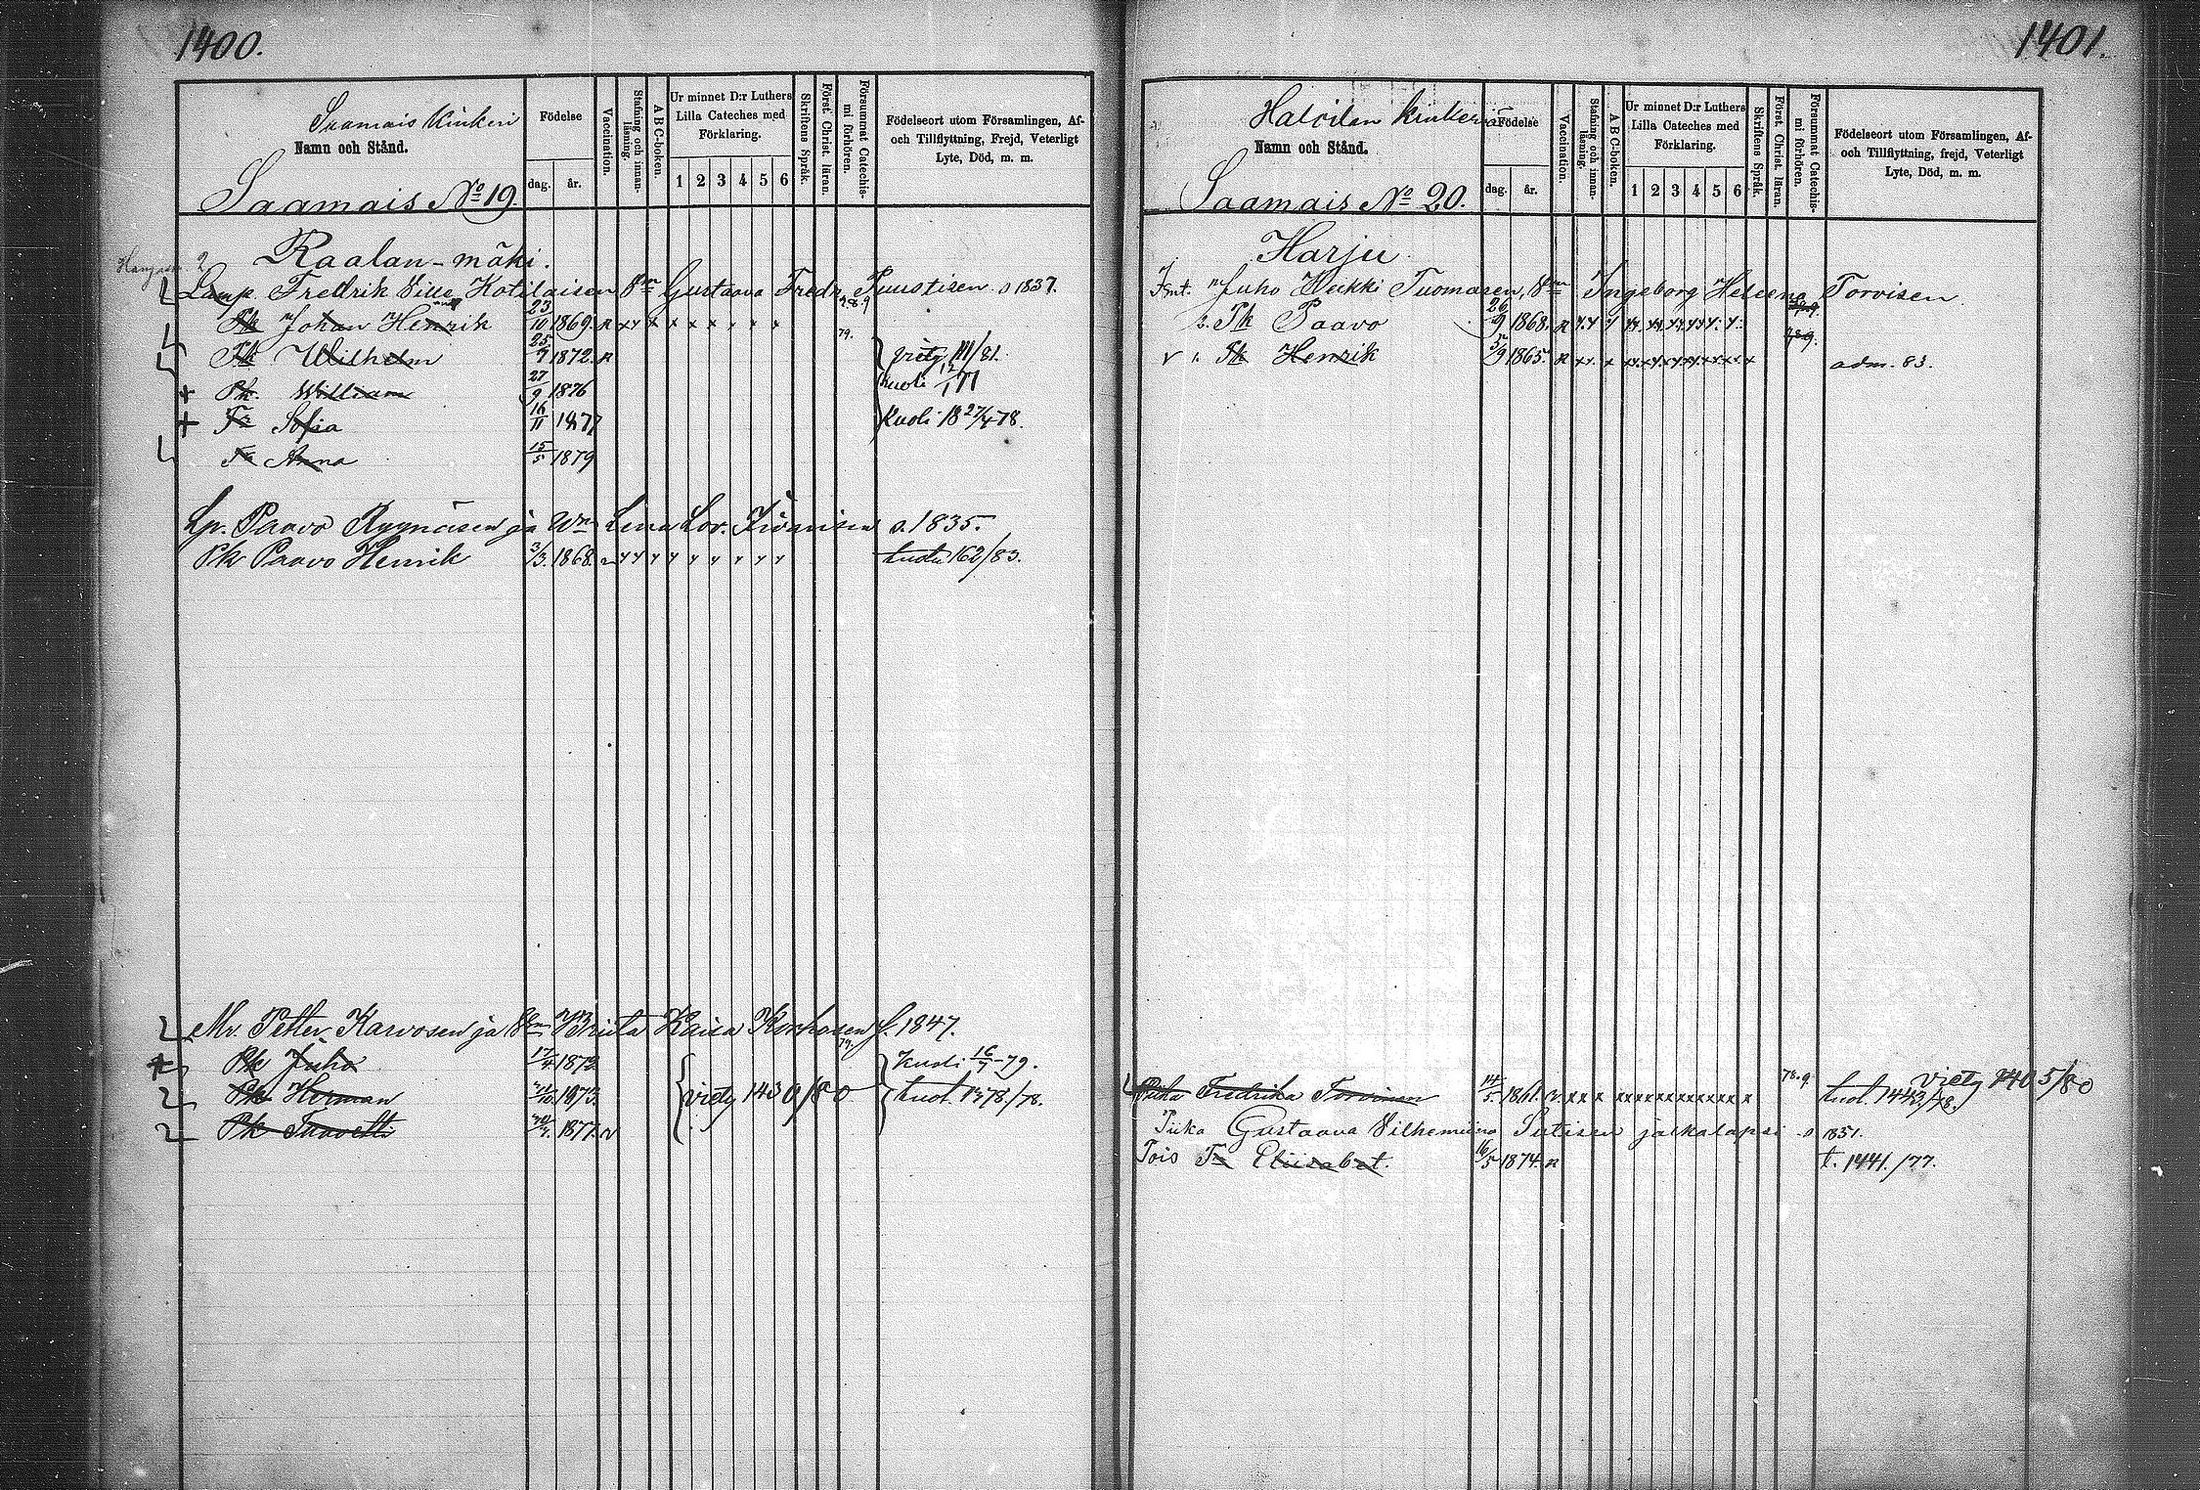 1400.
Saamais Kinkeri
Namn och Stånd.
Saamais No 19
Födelse
dag.
år.
Vaccination.
Stafning och innan-
läsning.
A B C-boken.
Ur minnet D:r Luthers
Lilla Cateches med
Förklaring.
1 2 3 4 5 6
Skriftens Språk.
Först. Christ. läran.
Försummat Catechis-
mi förhören.
Födelseort utom Församlingen, Af-
och Tillflyttning, Frejd, Veterligt
Lyte, Död, m. m.
Raalan-mäki.
Lamp. Fredrik Ville Kotilaisen Vm Gustaava Fredr. Puustisen s 1837.
Pk Johan Henrik 23/10 1869. n x x x x x x x x x
79.
Pk Wilhelm 25/9 1872. n viety 111/81.
Pk. William 27/9 1876 kuoli 12/1 77
Tr Sofia 16/11 1877 kuoli 18 27/4 78.
Tr Anna 15/5 1879
Lp. Paavo Ryynäsen ja Wm Lena Lov. s. 1835.
Pk Paavo Henrik 3/3. 1868. tuotu 162/83.
Mr. Petter Karvosen ja Vm Briita Kaisa Korhosen f. 1847.
79.
Pk Juho 17/4 1872 kuoli 16/7 -79.
Pk Herman 1973. viety 1430/80 tuot. 1378/78.
Pk Taavetti 1877. n
1401.
Halvilan kinkeriä
Namn och Stånd.
Saamais No 20.
Födelse
dag.
år.
Vaccination.
Stafning och innan-
läsning.
A B C-boken.
Ur minnet D:r Luthers
Lilla Cateches med
Förklaring.
1 2 3 4 5 6
Skriftens Språk.
Först. Christ. läran.
Försummat Catechis-
mi förhören.
Födelseort utom Församlingen, Af-
och Tillflyttning, frejd, Veterligt
Lyte, Död, m. m.
Harju
Juho Heikki Tuomasen, Vm Ingeborg Heleena Torvisen.
2. Pk Paavo 26/9 1868. n
v 1. Pk Henrik 5/9 1865. n adm. 83.
Piika Fredrika Torvinen 14/5 1861. n. x x x x x x x x x x x x x x 78.9 tuot. 1443/78. viety 1405/80
Piika Gustaava Vilhemiina Sutisen jalkalapsi s 1851.
Pois Tr Eliisabet. 16/5 1874. n t. 1441./77.